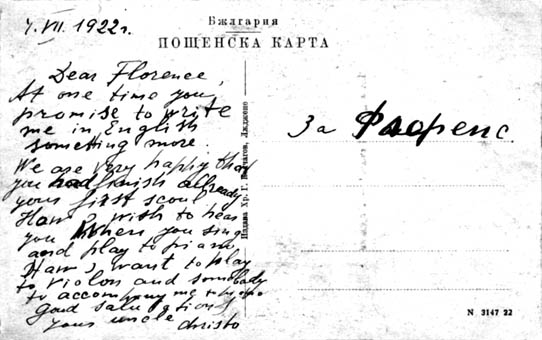 4. VII. 1922г.
Бжлгария
ПОЩЕНСКА КАРТА
Dear Florence,
At one time you
promise to write
me in English
something more.
We are very happy that
you had finish allready
your first scool
How I wish to hear
you when you sing
and play to piano
Haw I want to play
to violon and somebody
to accompany me to piano
good salutations
your uncle Christo
За Флоренс
Издава Хр. Г.
N 3147 22